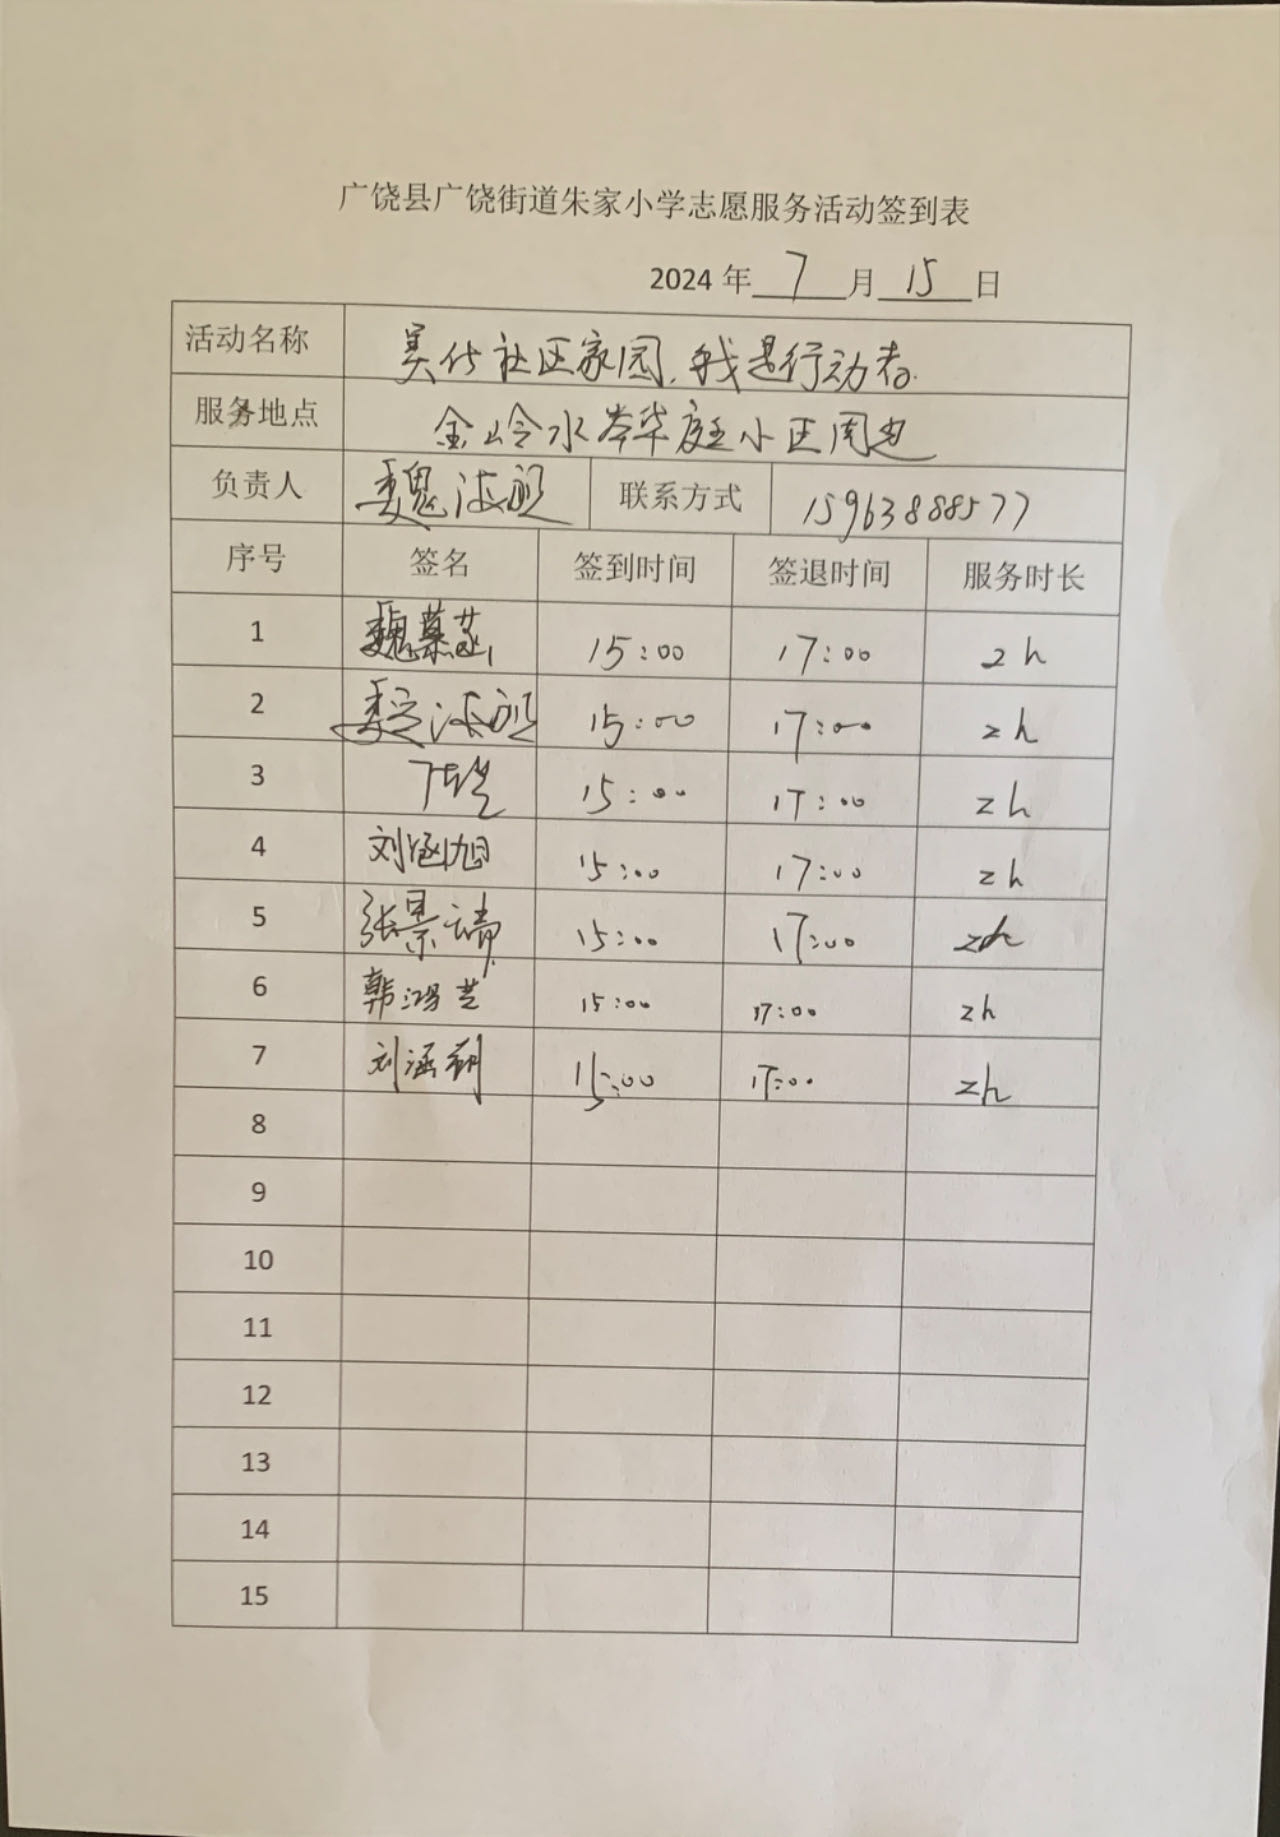 广饶县广饶街道朱家小学志愿服务活动签到表
2024 年 7 月 15 日
活动名称 美化社区家园,我是行动者.
服务地点 金岭水岸华庭小区周边
负责人 魏海 联系方式 15963888577
序号 签名 签到时间 签退时间 服务时长
1 魏慕菡 15:00 17:00 2h
2 魏海 15:00 17:00 2h
3 15:00 17:00 2h
4 刘涵旭 15:00 17:00 2h
5 张景端 15:00 17:00 2h
6 韩鸿芝 15:00 17:00 2h
7 刘涵 15:00 17:00 2h
8
9
10
11
12
13
14
15